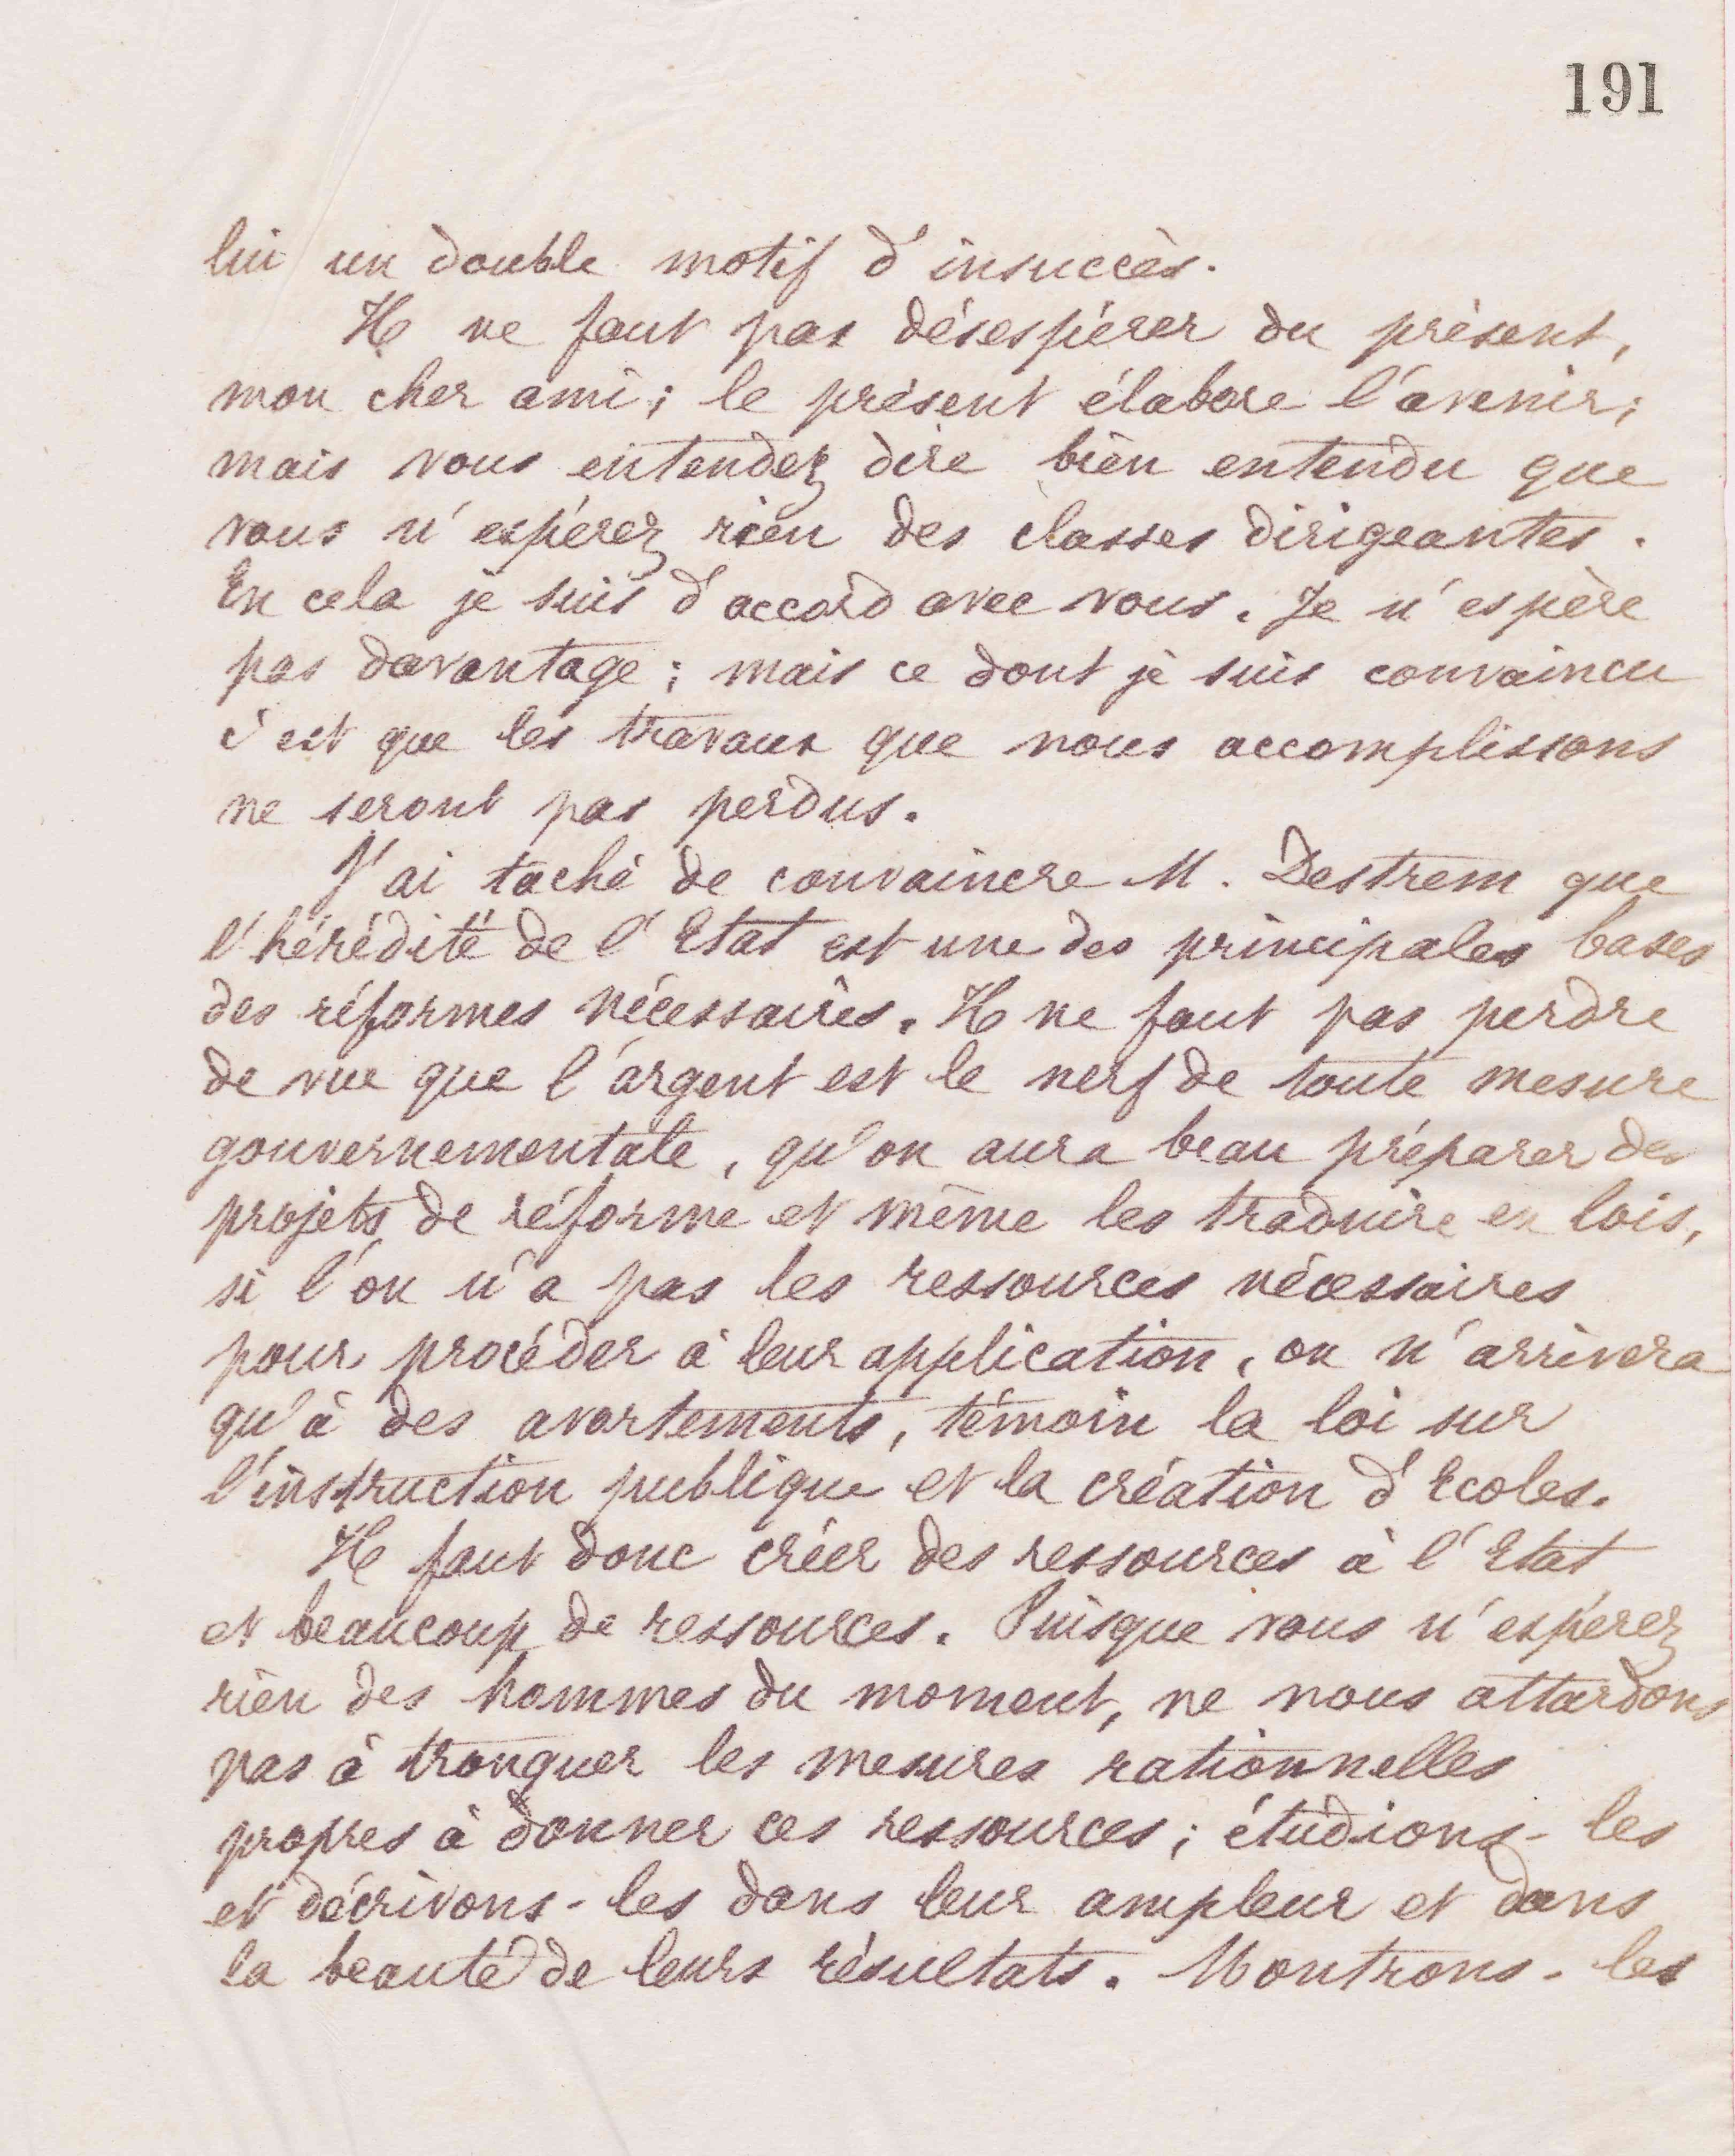 191
lui un double motif d'insuccès.
Il ne faut pas désespérer du présent,
mon cher ami; le présent élabore l'avenir;
mais vous entendez dire bien entendu que
vous n'espérez rien des classes dirigeantes.
En cela je suis d'accord avec vous. Je n'espère
pas davantage; mais ce dont je suis convaincu
c'est que les travaux que nous accomplissons
ne seront pas perdus.
J'ai taché de convaincre M. Destrem que
l'hérédité de l'Etat est une des principales bases
des réformes nécessaires. Il ne faut pas perdre
de vue que l'argent est le nerf de toute mesure
gouvernementale, qu'on aura beau préparer des
projets de réforme et même les traduire en lois,
si l'on n'a pas les ressources nécessaires
pour procéder à leur application, on n'arrivera
qu'à des avortements, témoin la loi sur
l'instruction publique et la création d'Ecoles.
Il faut donc créer des ressources à l'Etat
et beaucoup de ressources. Puisque vous n'espérez
rien des hommes du moment, ne nous attardons
pas à tronquer les mesures rationnelles
propres à donner ces ressources; étudions-les
et décrivons-les dans leur ampleur et dans
la beauté de leurs résultats. Montrons-les